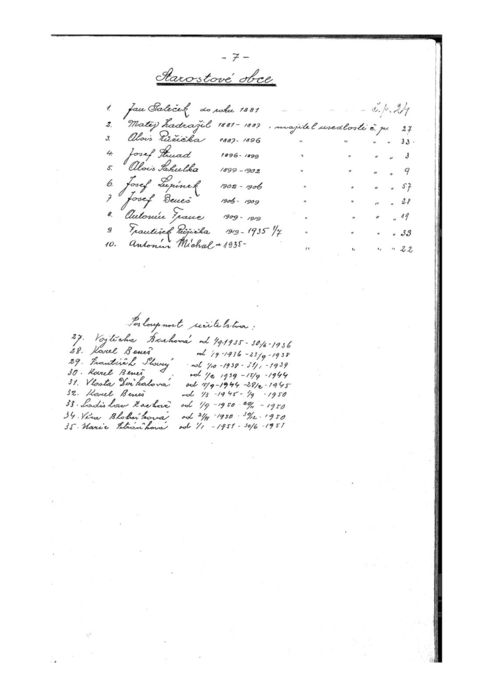 - 7 -
Starostové obce
1. Jan Paleček do roku 1881 - - - č.p. 21
2. Matěj Zadražil 1881-1887 . majitel usedlosti č. p. 27
3. Alois Růžička 1887-1896 " " " 33
4. Josef 1896-1899 " " " 3
5. Alois Sakulka 1899-1902 " " " 9
6. Josef Lupínek 1902-1906 " " " 57
7 Josef Beneš 1906-1909 " " " 28
8. Antonín Franc 1909-1919 " " " 19
9 František Růžička 1919-1935 1/7 " " " 33
10. Antonín Michal - 1935- " " " 22
Posloupnost učitelstva:
27. Vojtěcha od 1/9 1935-30/6-1936
28. Karel Beneš od 1/9-1936-23/9-1938
29. František od 1/10-1938-31/1-1939
30. Karel Beneš od 1/2 1939-15/9-1944
31. Vlasta od 17/9-1944-28/2-1945
32. Karel Beneš od 1/3-1945-1/9-1950
33. Ladislav od 1/9-1950 - 1950
34. Věra od - 1950 - 1950.
35. Marie od 1/1-1951-30/6-1951